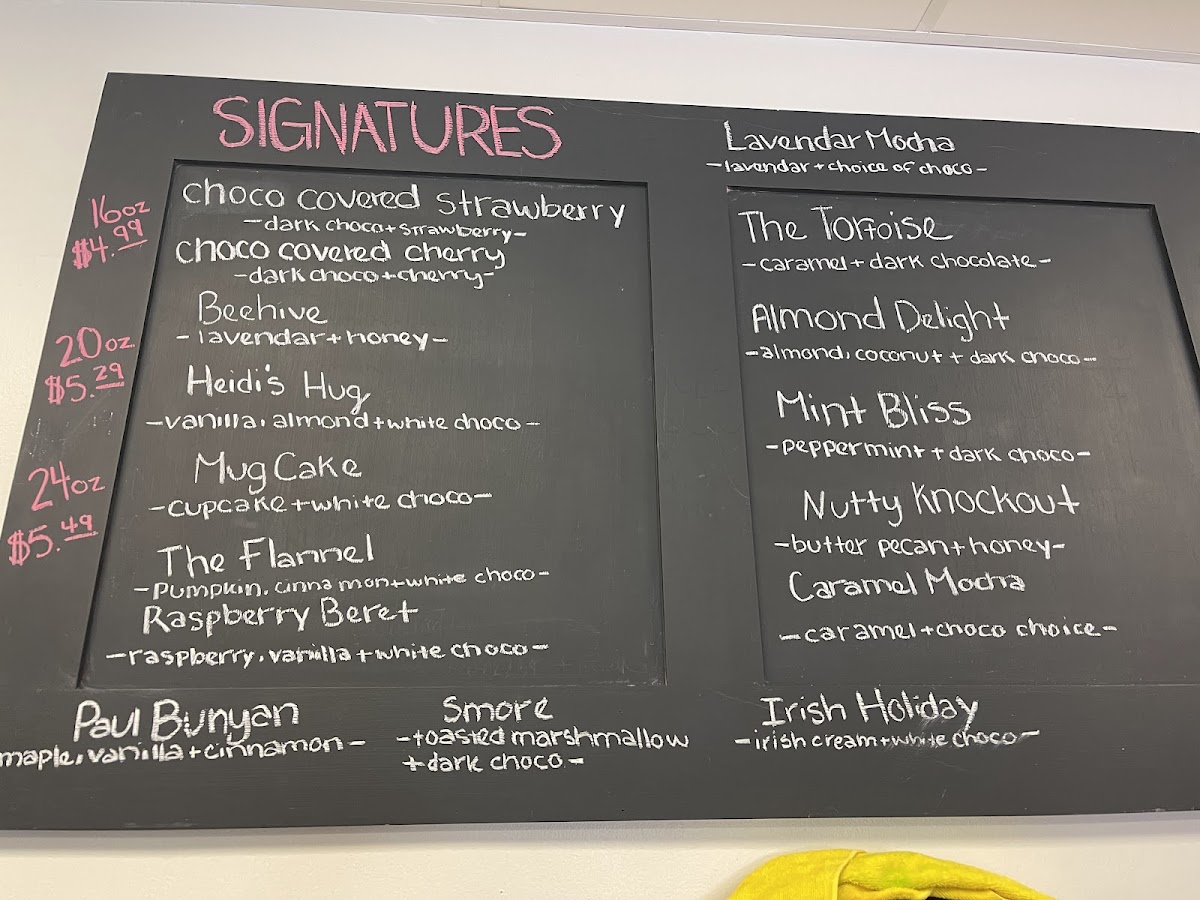 SIGNATURES
16oz
$4.99
20oz
$5.29
24oz
$5.49
choco covered strawberry
-dark choco+strawberry-
choco covered cherry
-dark choco+cherry-
Beehive
-lavendar+honey-
Heidi's Hug
-vanilla, almond+white choco-
Mug Cake
-cupcake+white choco-
The Flannel
-pumpkin, cinnamon+white choco-
Raspberry Beret
-raspberry, vanilla+white choco-
Paul Bunyan
maple, vanilla+cinnamon-
Smore
-toasted marshmallow
+dark choco-
Lavendar Mocha
-lavendar+choice of choco-
The Tortoise
-caramel+dark chocolate-
Almond Delight
-almond, coconut+dark choco-
Mint Bliss
-peppermint+dark choco-
Nutty Knockout
-butter pecan+honey-
Caramel Mocha
-caramel+choco choice-
Irish Holiday
-irish cream+white choco-